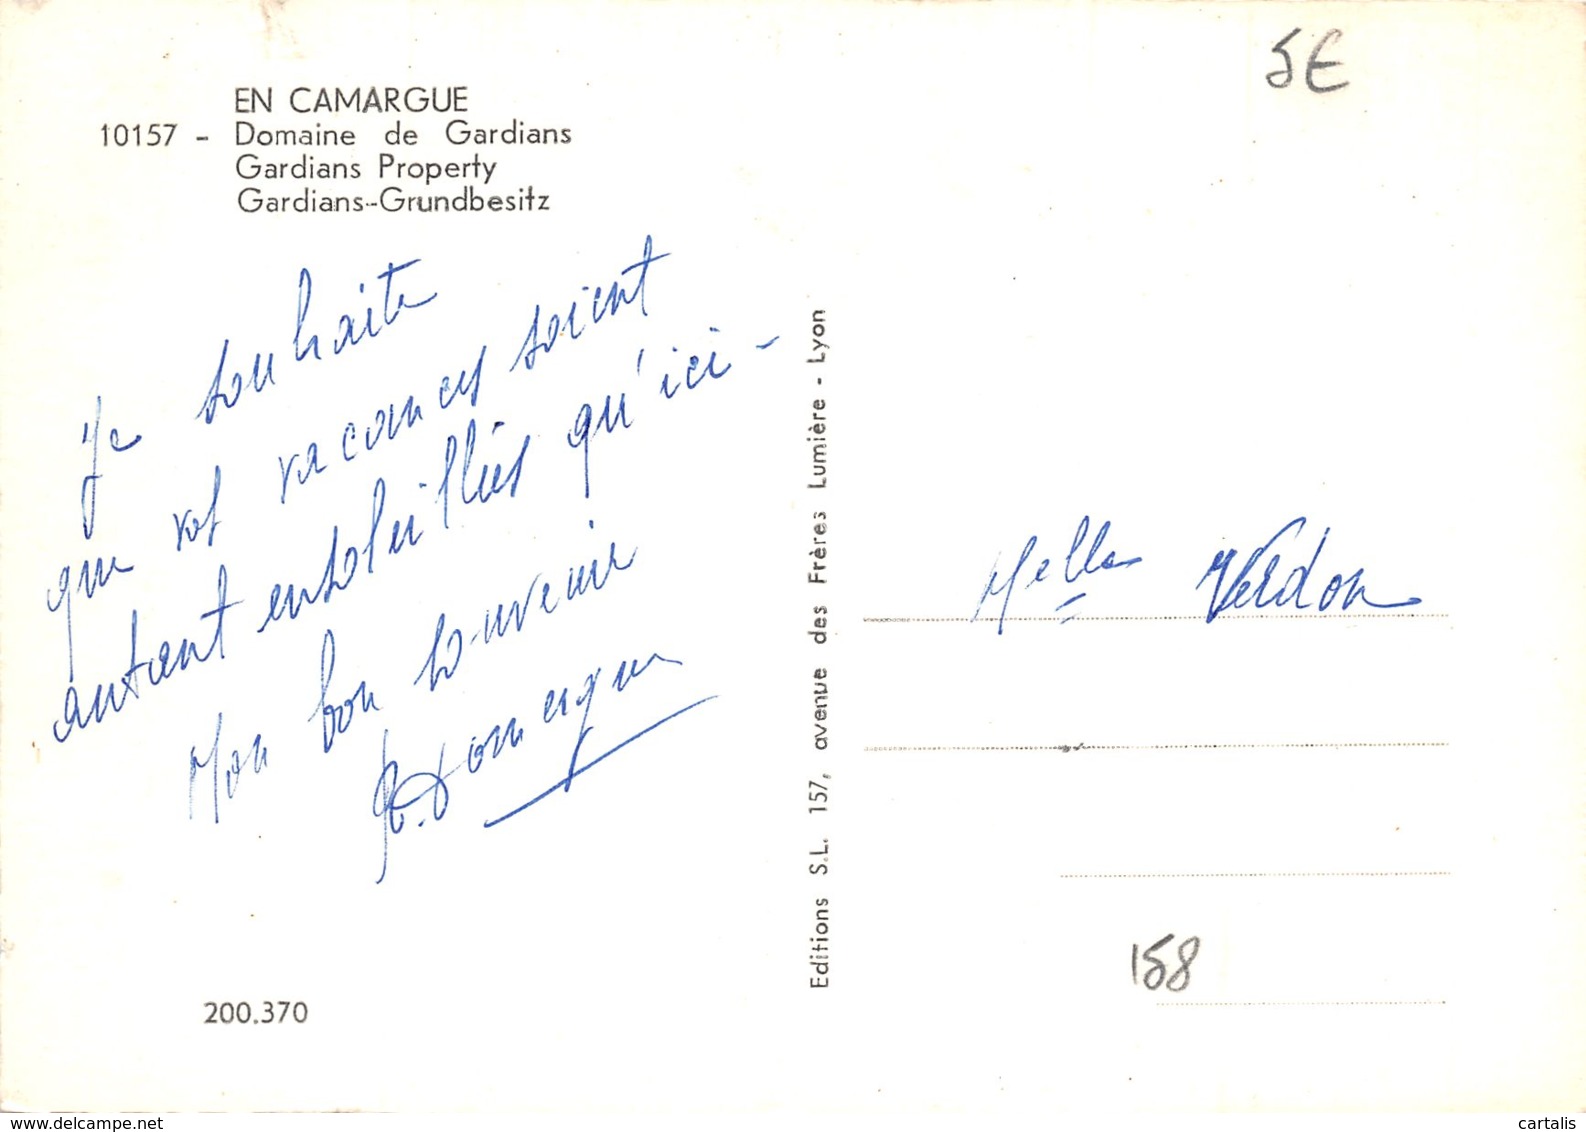 EN CAMARGUE
10157 - Domaine de Gardians
Gardians Property
Gardians-Grundbesitz
Je souhaite
que vos vacances soient
autant ensoleillées qu'ici -
Mon bon souvenir
200.370
Editions S.L. 157, avenue des Frères Lumière - Lyon
5€
Melles Verdon
158
www.delcampe.net
cartalis